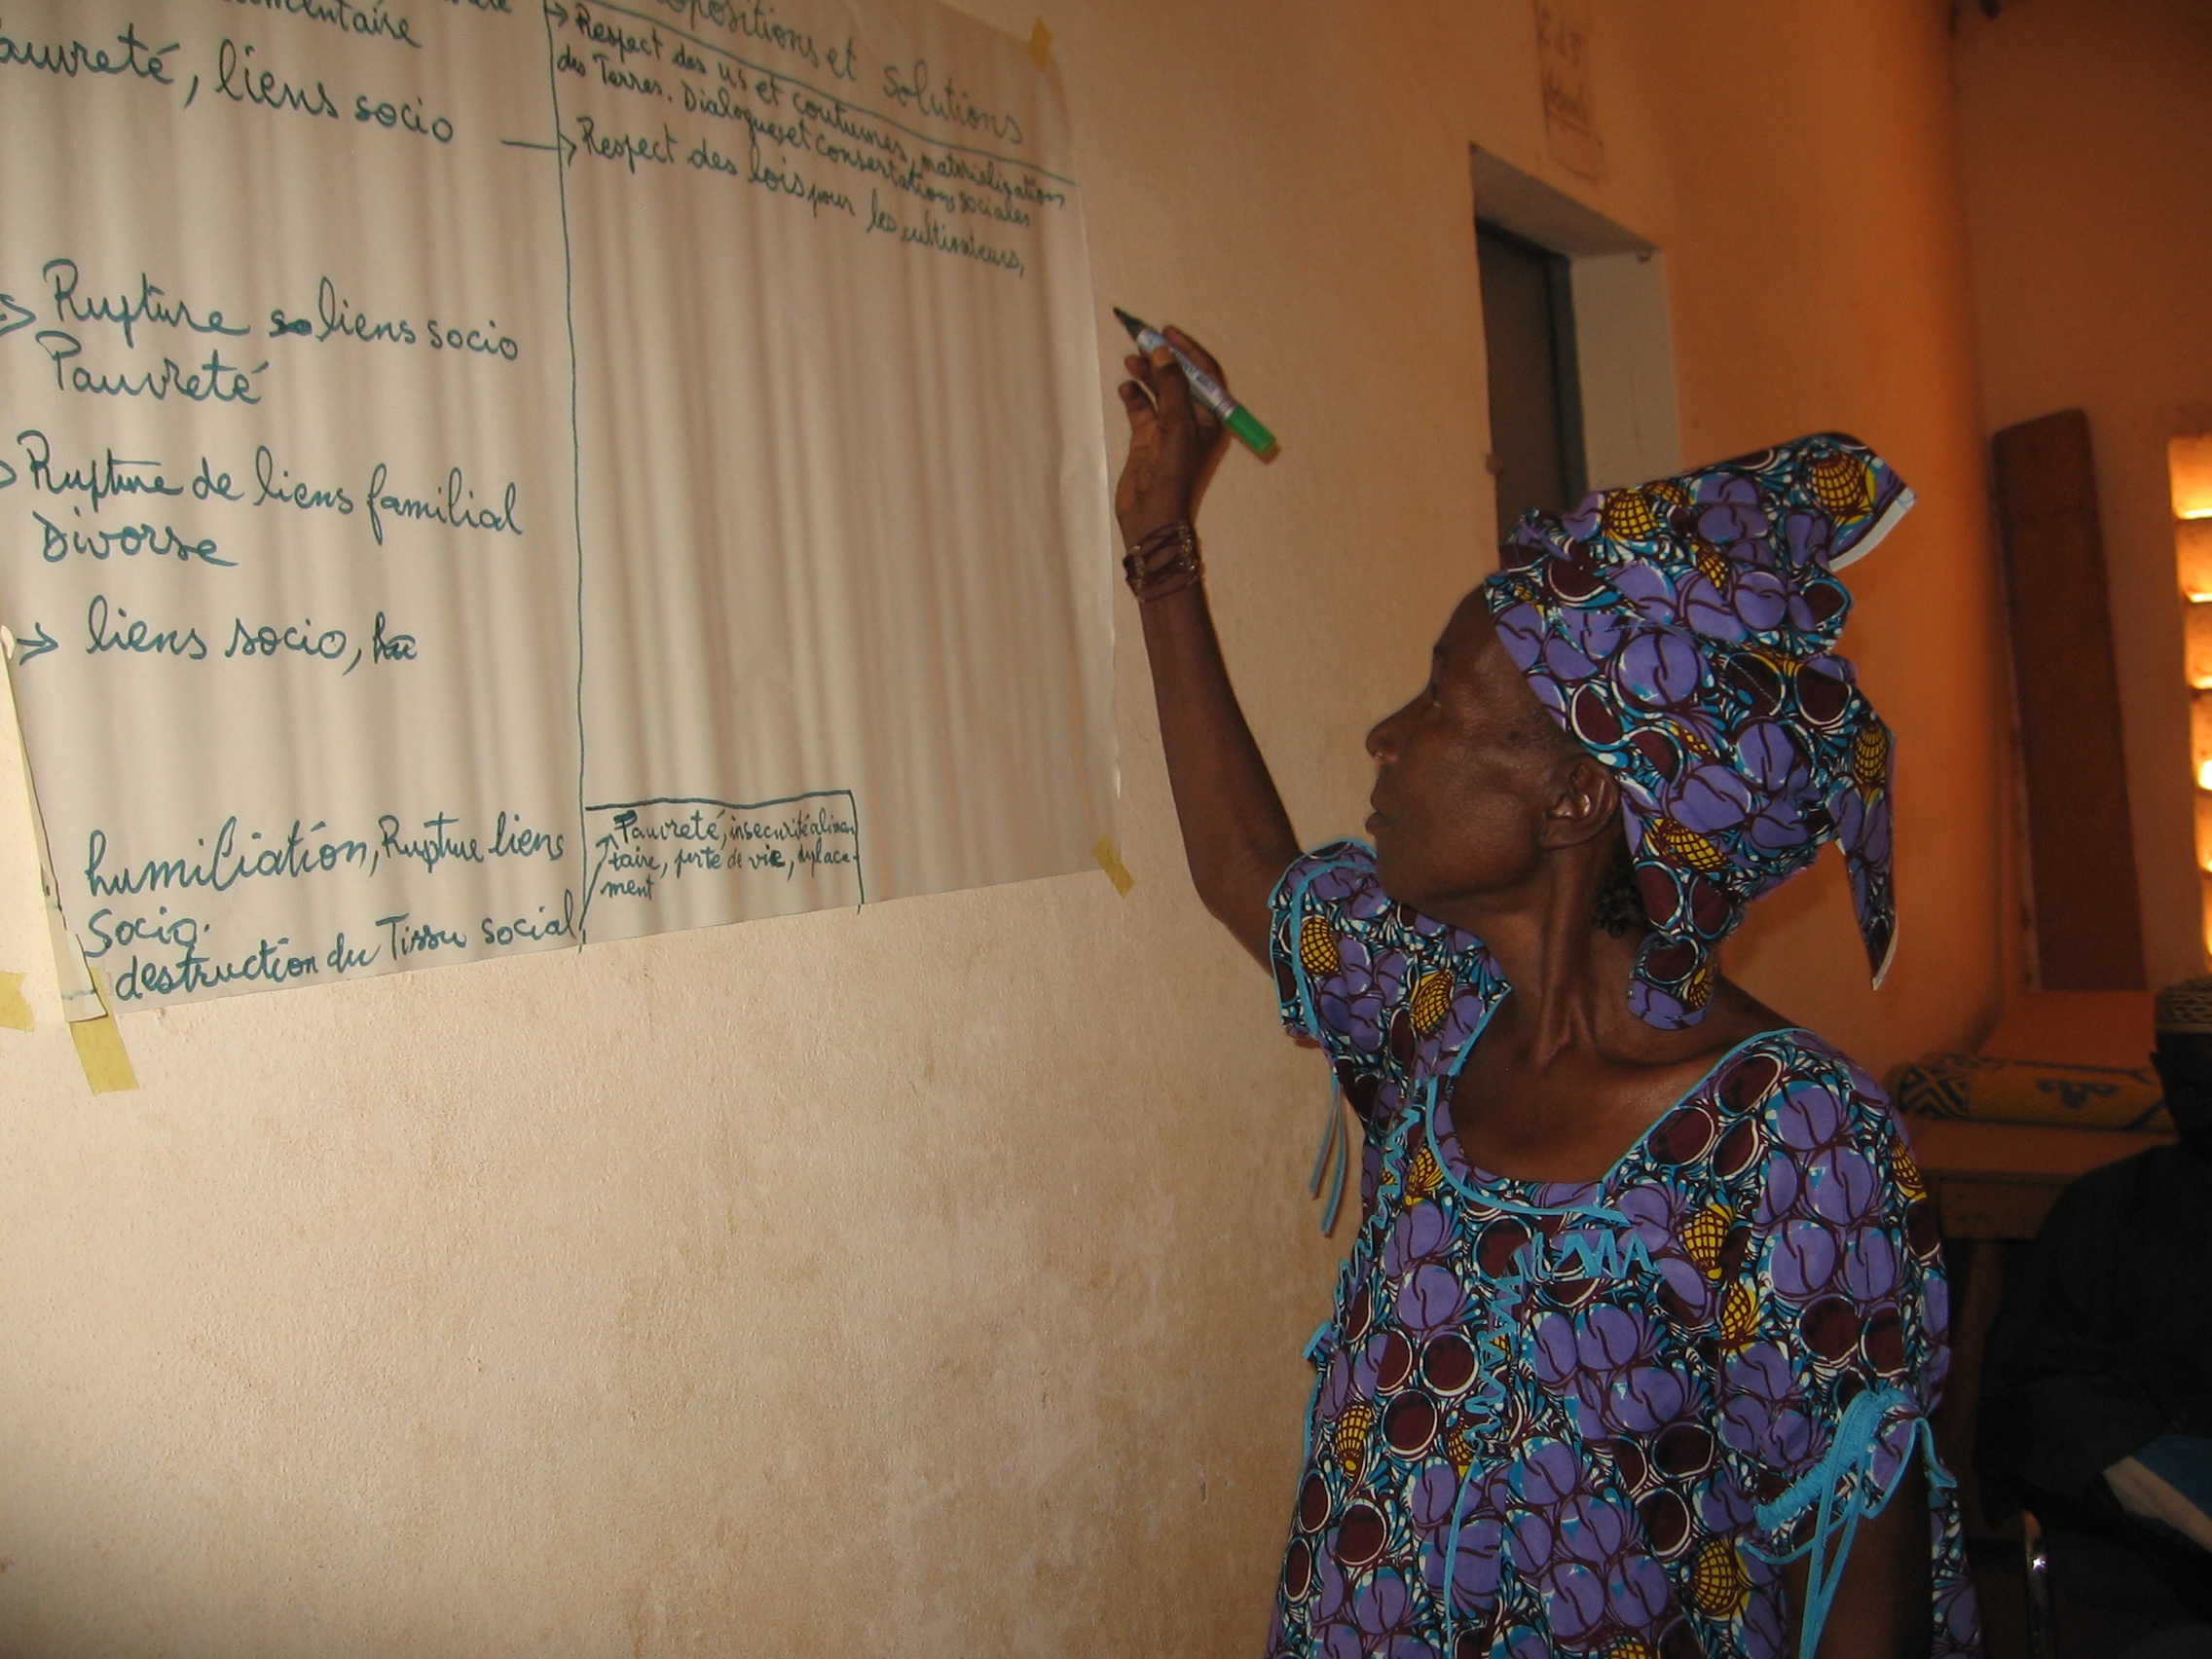 mentaire
auvreté, liens socio
→ Rupture so liens socio
Pauvreté
→ Rupture de liens familial
Divorse
→ liens socio,
humiliation, Rupture liens
Socio.
destruction du Tissu social
opositions et Solutions
→ Respect des us et coutumes, materialization
des Terres. Dialogues et Consertations sociales
→ Respect des lois pour les cultivateurs,
Pauvreté, insecurité alimen
taire, perte de vie, deplace-
ment